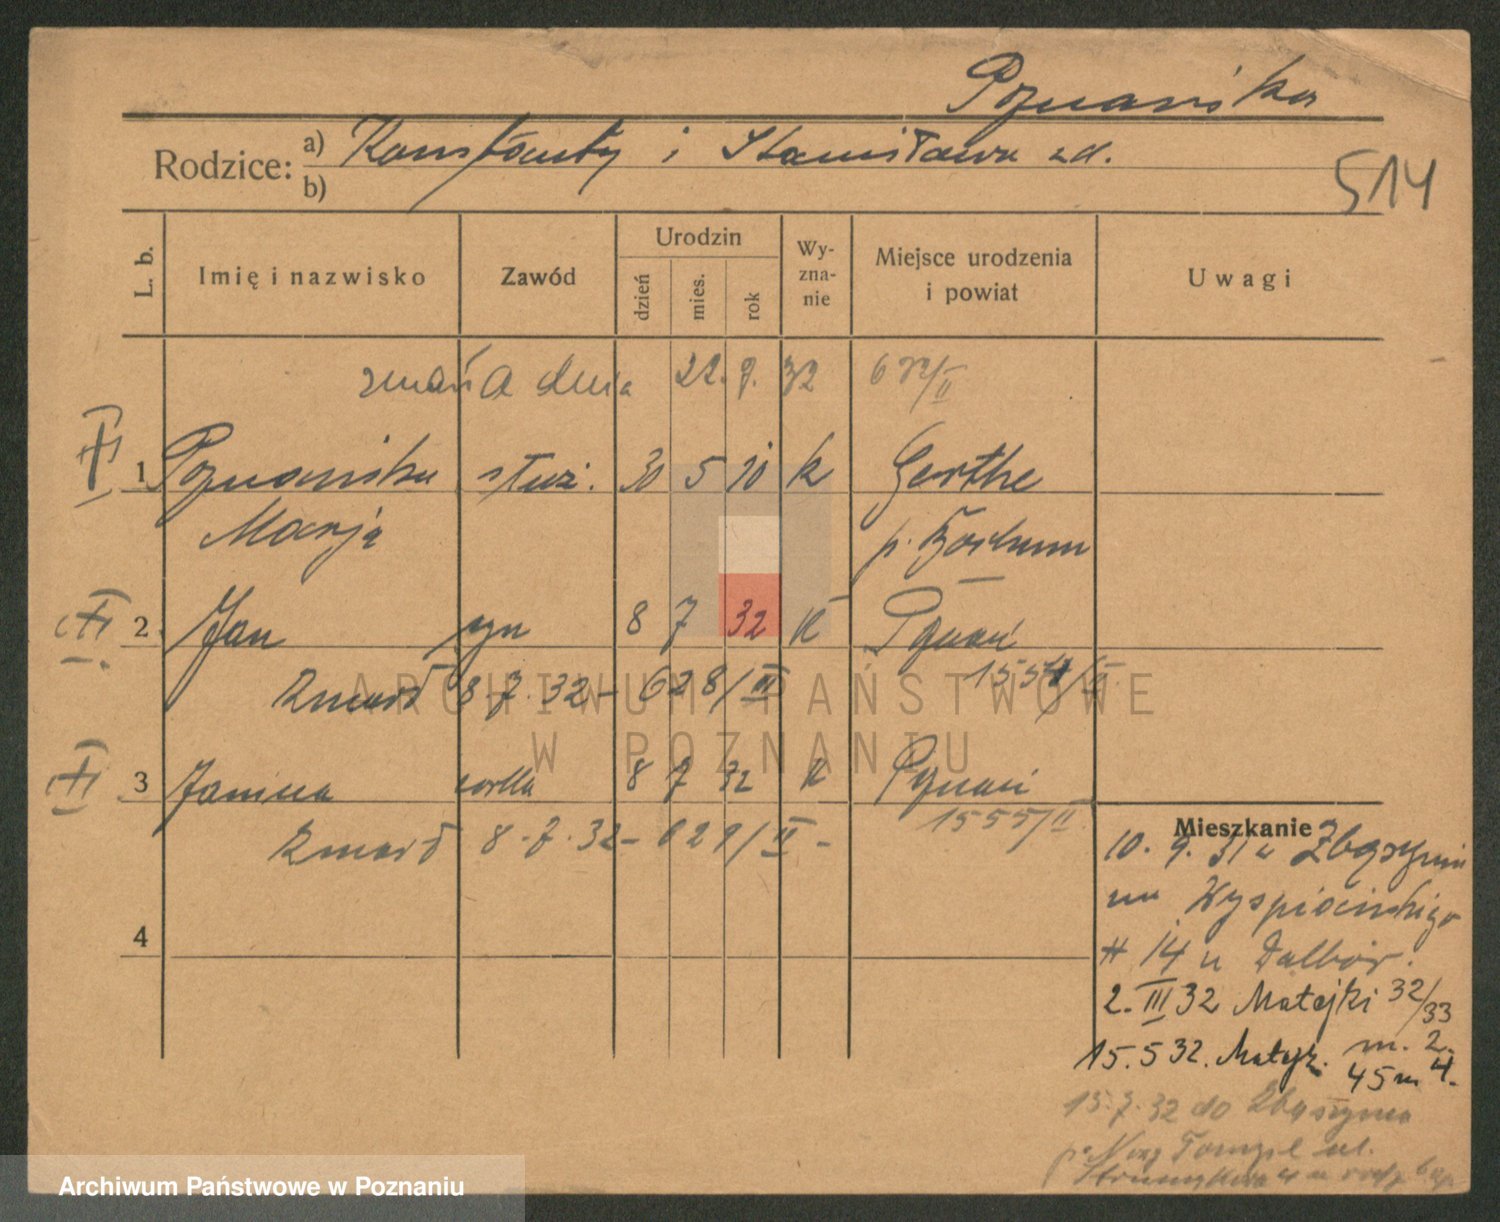 Poznańska
Rodzice: a) Konstanty i Stanisława zd.
b)
514
L. b. Imię i nazwisko Zawód Urodzin dzień mies. rok Wy-zna-nie Miejsce urodzenia i powiat Uwagi
zmarła dnia 22. 7. 32 672/II
1 Poznańska służ. 30 5 10 k Gerthe
Marja p. Bochum
2 Jan syn 8 7 32 k Poznań
Zmarł 8.7.32 - 628/II 1554/II
3 Janina córka 8 7 32 k Poznań
Zmarł 8.7.32 - 629/II - 1555/II
4
Mieszkanie
10. 9. 31 z Zbąszynia
na Wyspiańskiego
# 14 u Dalbor.
2. III 32 Matejki 32/33
m. 2.
15. 5 32. Matejk. 45 m 4.
13. 7. 32 do Zbąszynia
p. Nowy Tomyśl ul.
ARCHIWUM PAŃSTWOWE
W POZNANIU
Archiwum Państwowe w Poznaniu